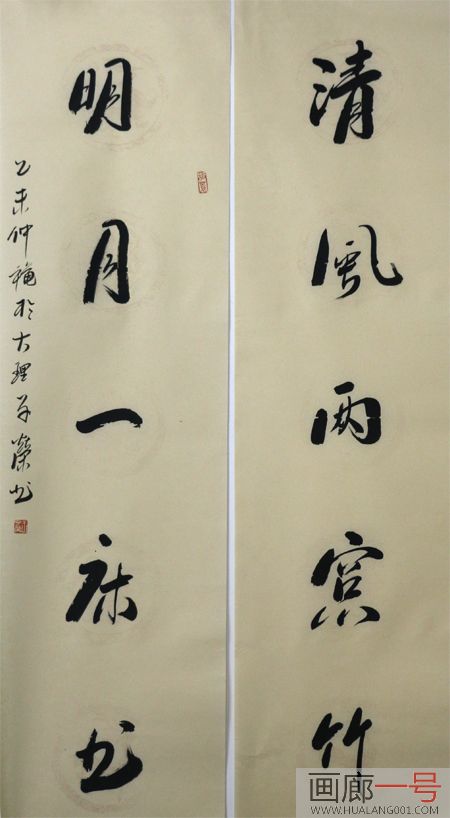 清風兩窓竹
明月一床书
乙未仲龝於大理学榮书
画廊一号
WWW.HUALANG001.COM